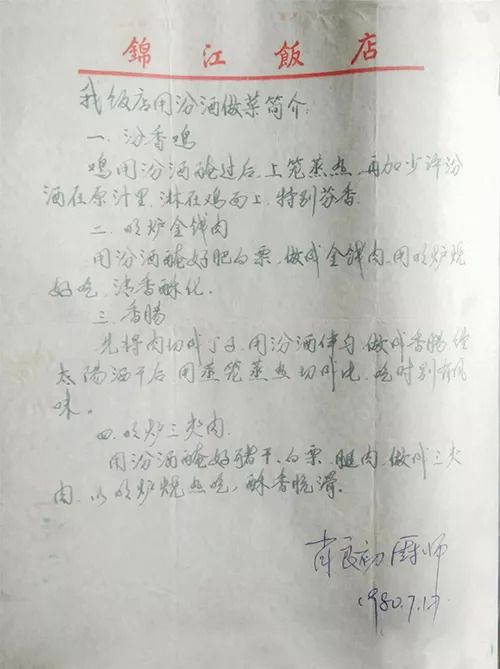 錦江飯店
我饭店用汾酒做菜简介:
一. 汾香鸡
鸡用汾酒醃过后,上笼蒸熟,再加少许汾
酒在原汁里,淋在鸡面上,特别芬香.
二. 明炉金钱肉
用汾酒醃好肥白票,做成金钱肉,用明炉烧
好吃,清香酥化.
三. 香腸
先将肉切成丁子,用汾酒伴匀,做成香腸经
太陽洒干后,用蒸笼蒸熟切片,吃时别有风
味。
四. 明炉三夹肉.
用汾酒醃好猪干、白票、腿肉,做成三夹
肉,以明炉烧熟吃,酥香脆滑.
肖良初厨师
1980.7.17.